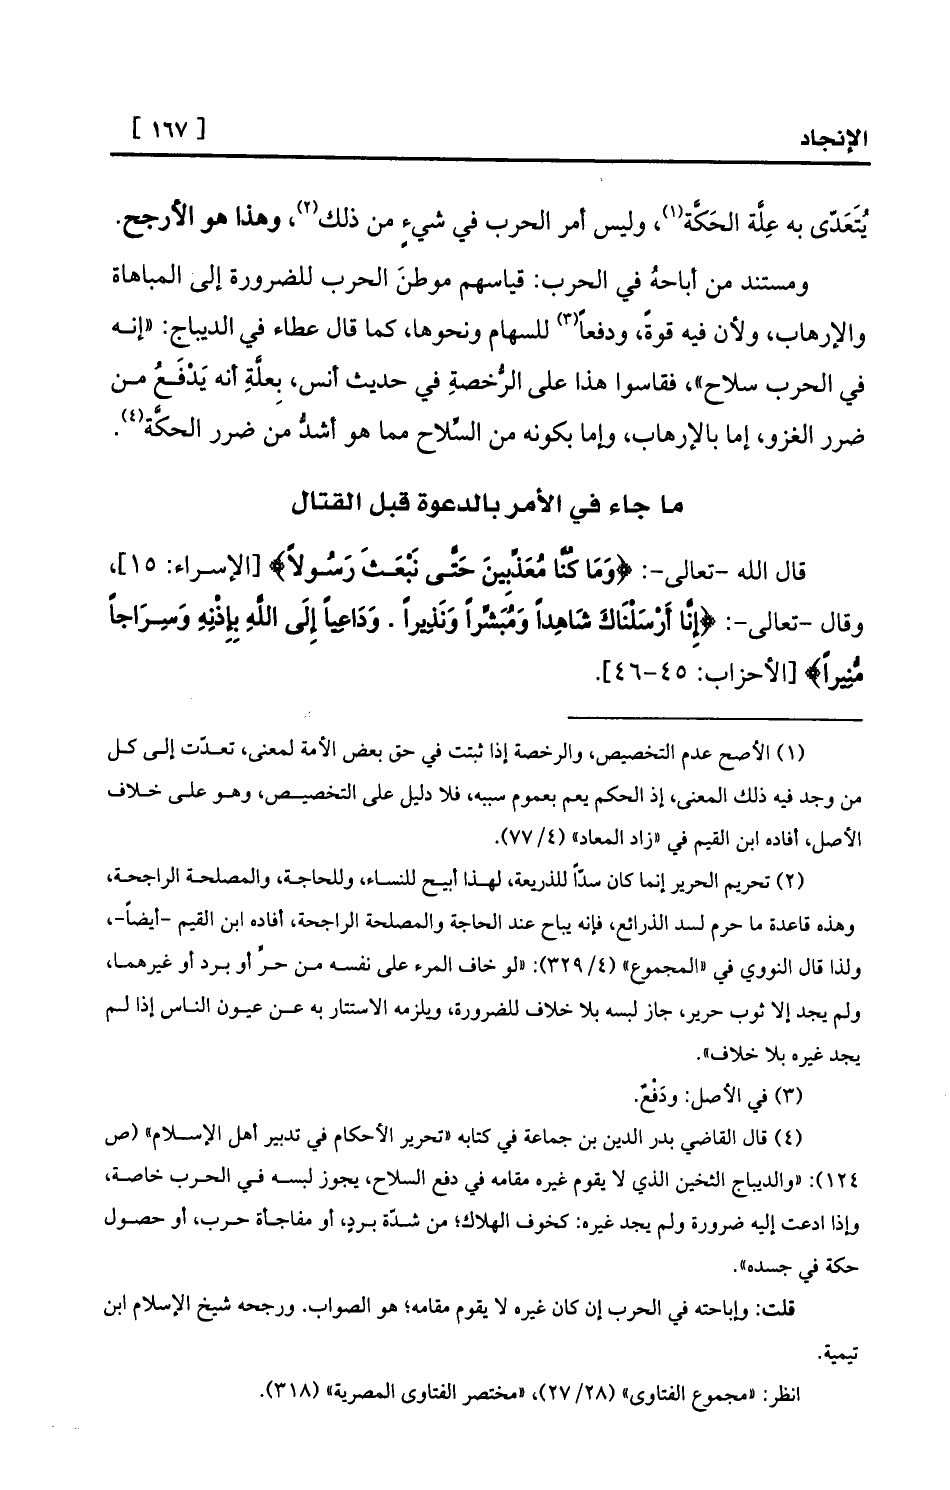 الإنجاد
[ ١٦٧ ]
يُتَعَدّى به عِلَّة الحَكَّة(١)، وليس أمر الحرب في شيءٍ من ذلك(٢)، وهذا هو الأرجح.
ومستند من أباحهُ في الحرب: قياسهم موطنَ الحرب للضرورة إلى المباهاة
والإرهاب، ولأن فيه قوةً، ودفعاً(٣) للسهام ونحوها، كما قال عطاء في الديباج: «إنه
في الحرب سلاح»، فقاسوا هذا على الرُّخصةِ في حديث أنس، بعلَّةِ أنه يَدْفَعُ من
ضرر الغزو، إما بالإرهاب، وإما بكونه من السِّلاح مما هو أشدُّ من ضرر الحكَّة(٤).
ما جاء في الأمر بالدعوة قبل القتال
قال الله -تعالى-: ﴿وَمَا كُنَّا مُعَذِّبِينَ حَتَّى نَبْعَثَ رَسُولاً﴾ [الإسراء: ١٥]،
وقال -تعالى-: ﴿إِنَّا أَرْسَلْنَاكَ شَاهِداً وَمُبَشِّراً وَنَذِيراً . وَدَاعِياً إِلَى اللَّهِ بِإِذْنِهِ وَسِرَاجاً
مُّنِيراً﴾ [الأحزاب: ٤٥-٤٦].
(١) الأصح عدم التخصيص، والرخصة إذا ثبتت في حق بعض الأمة لمعنى، تعدّت إلى كل
من وجد فيه ذلك المعنى، إذ الحكم يعم بعموم سببه، فلا دليل على التخصيص، وهو على خلاف
الأصل، أفاده ابن القيم في «زاد المعاد» (٤/ ٧٧).
(٢) تحريم الحرير إنما كان سدّاً للذريعة، لهذا أبيح للنساء، وللحاجة، والمصلحة الراجحة،
وهذه قاعدة ما حرم لسد الذرائع، فإنه يباح عند الحاجة والمصلحة الراجحة، أفاده ابن القيم -أيضاً-،
ولذا قال النووي في «المجموع» (٤/ ٣٢٩): «لو خاف المرء على نفسه من حرٍّ أو برد أو غيرهما،
ولم يجد إلا ثوب حرير، جاز لبسه بلا خلاف للضرورة، ويلزمه الاستتار به عن عيون الناس إذا لم
يجد غيره بلا خلاف».
(٣) في الأصل: ودَفْعٌ.
(٤) قال القاضي بدر الدين بن جماعة في كتابه «تحرير الأحكام في تدبير أهل الإسلام» (ص
١٢٤): «والديباج الثخين الذي لا يقوم غيره مقامه في دفع السلاح، يجوز لبسه في الحرب خاصة،
وإذا ادعت إليه ضرورة ولم يجد غيره: كخوف الهلاك؛ من شدّة بردٍ، أو مفاجأة حرب، أو حصول
حكة في جسده».
قلت: وإباحته في الحرب إن كان غيره لا يقوم مقامه؛ هو الصواب. ورجحه شيخ الإسلام ابن
تيمية.
انظر: «مجموع الفتاوى» (٢٨/ ٢٧)، «مختصر الفتاوى المصرية» (٣١٨).